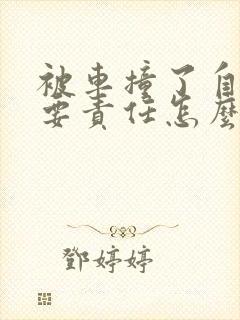 被車撞了自
要責任怎麼
鄧婷婷